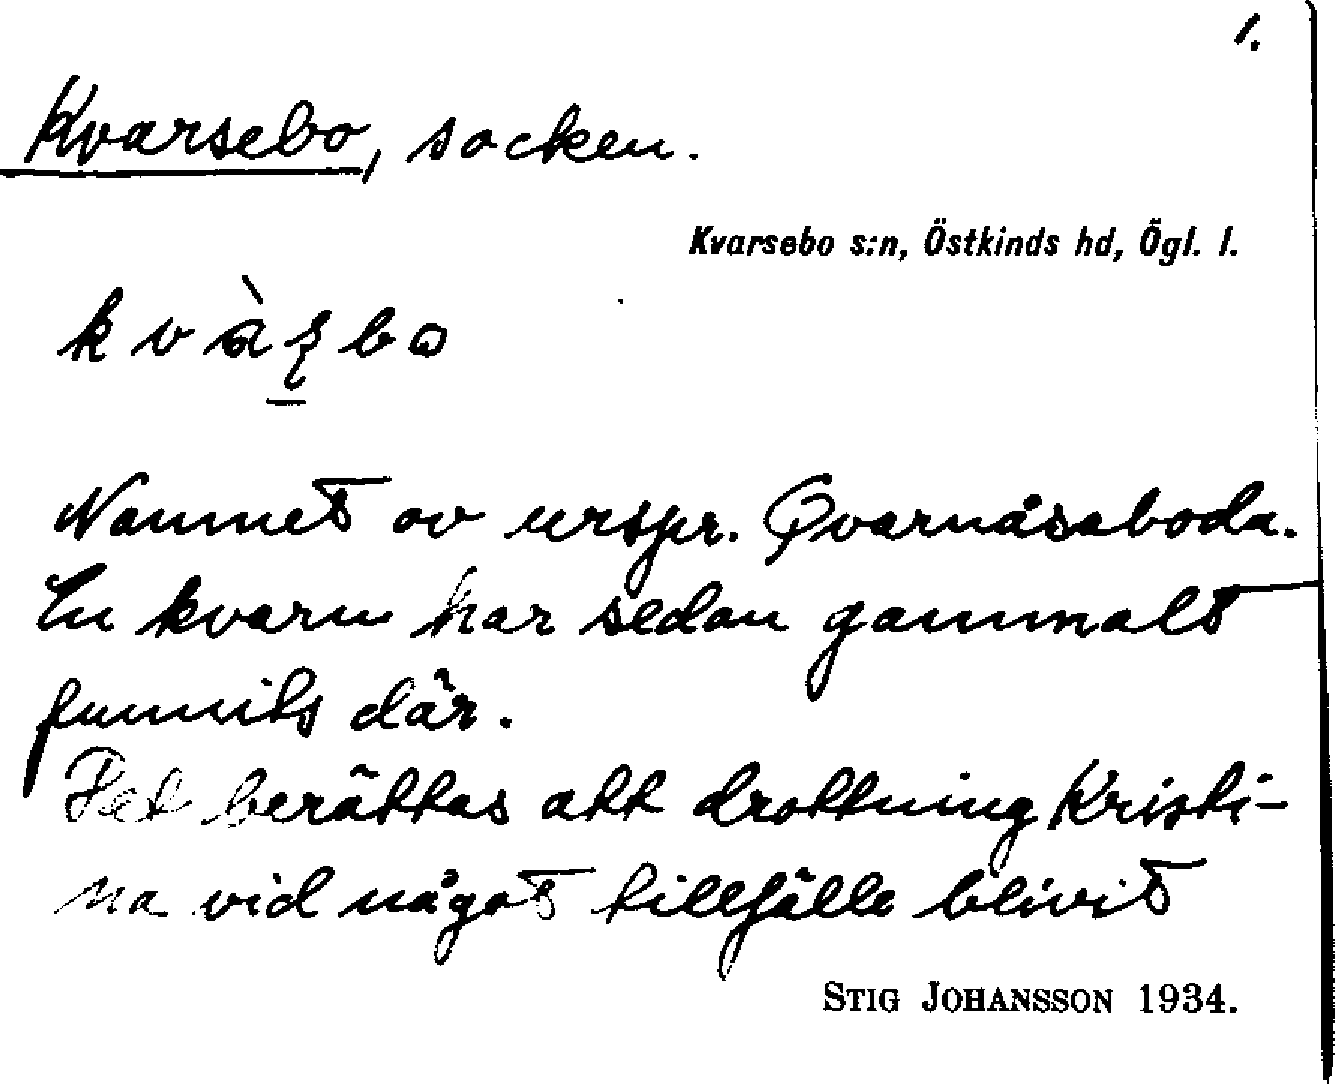 1.
Kvarsebo, socken.
Kvarsebo s:n, Östkinds hd, Ögl. l.
Namnet av urspr. Qvarnåsaboda.
En kvarn har sedan gammalt
funnits där.
Det berättas att drottning Kristi-
na vid något tillfälle blivit
STIG JOHANSSON 1934.